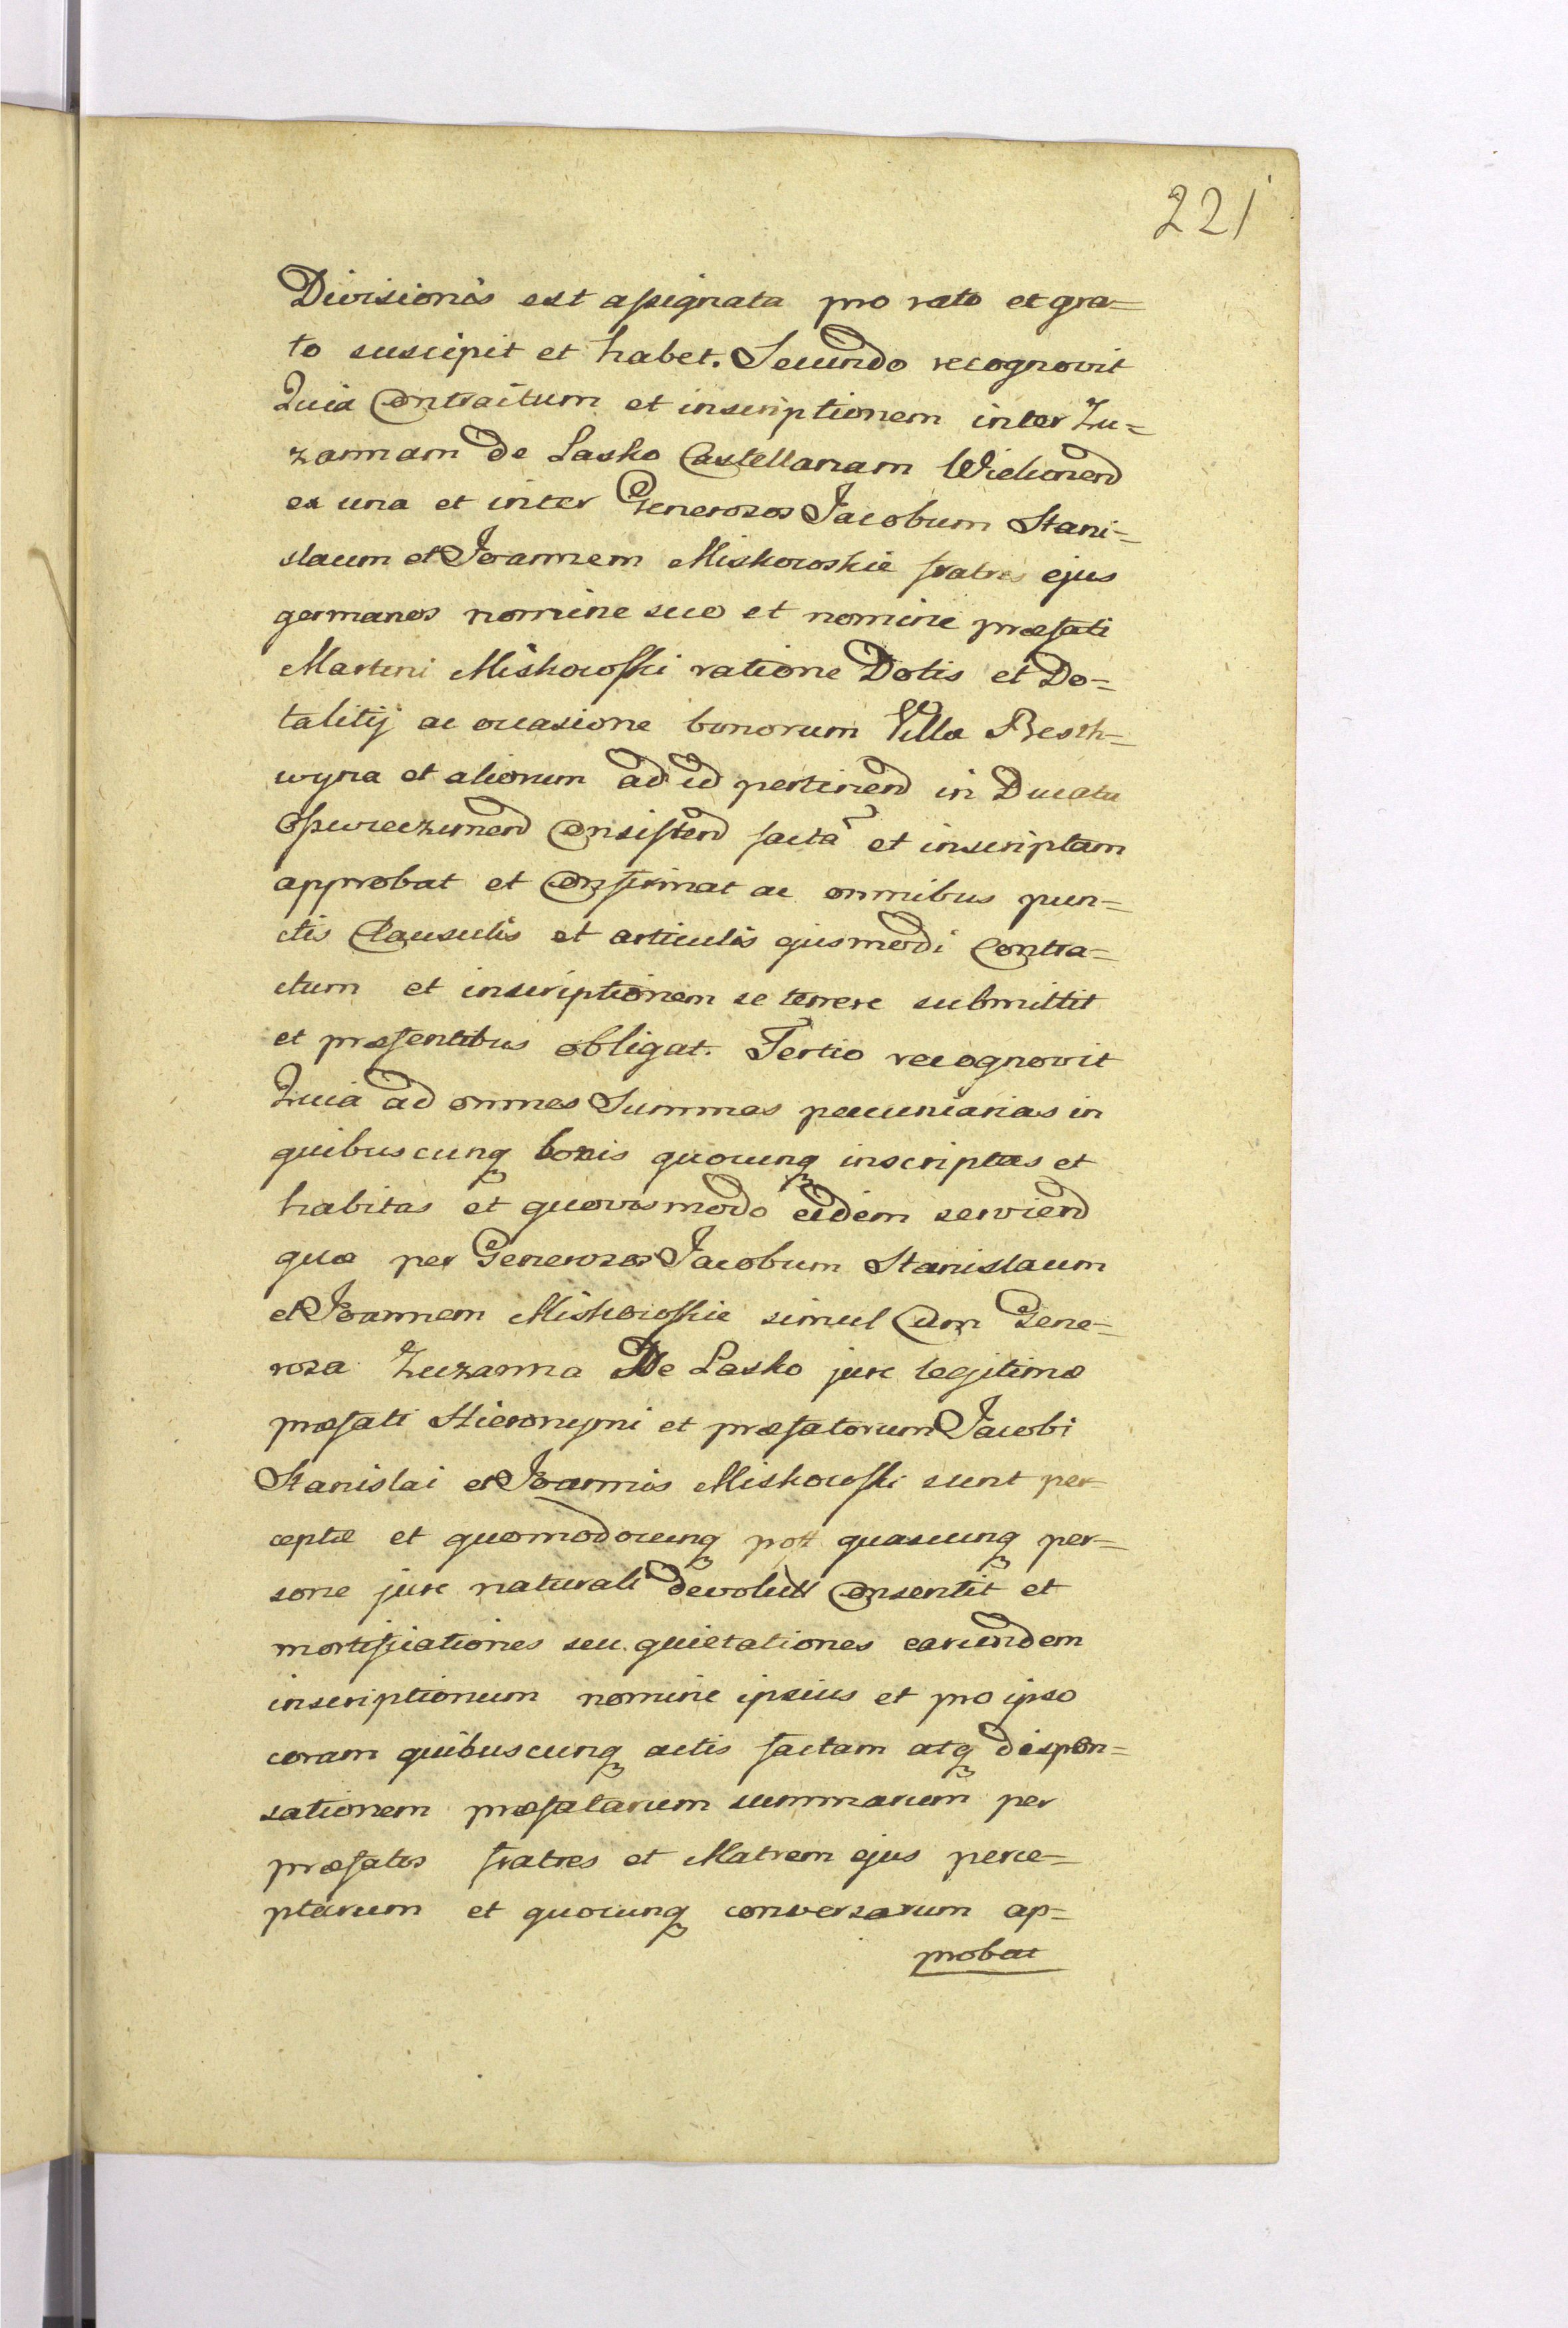 221
Divisionis est assignata pro rato et gra=
to suscipit et habet. Secundo recognovit
Quia Contractum et inscriptionem inter Zu=
zannam de Lasko Castellanam Wielunend
ex una et inter Generosos Jacobum Stani=
slaum et Joannem Miskowskie fratres ejus
germanos nomine suo et nomine præfati
Martini Miskowski ratione Dotis et Do=
talitij ac occasione bonorum Villa Besth=
wyna et aliorum ad id pertinend in Ducatu
Oswieczimend Consistend facta~ et inscriptam
approbat et Confirmat ac omnibus pun=
ctis Clausulis et articulis ejusmodi Contra=
ctum et inscriptionem se tenere submittit
et præsentibus obligat. Tertio recognovit
Quia ad omnes Summas pecuniarias in
quibuscunq bonis quocunq inscriptas et
habitas et quovis modo eidem serviend
quæ per Generosos Jacobum Stanislaum
et Joannem Miskowskie simul Cum Gene=
rosa Zuzanna De Lasko jure legitimo
præfati Hieronymi et præfatorum Jacobi
Stanislai et Joannis Miskowski sunt per=
ceptæ et quomodocunq post quascunq per=
sone jure naturali devolutt Consentit et
mortificationes seu quietationes earundem
inscriptionum nomine ipsius et pro ipso
coram quibuscunq actis factam atq dispen=
sationem præfatarum summarum per
præfatos fratres et Matrem ejus perce=
ptarum et quocunq conversarum ap=
probat